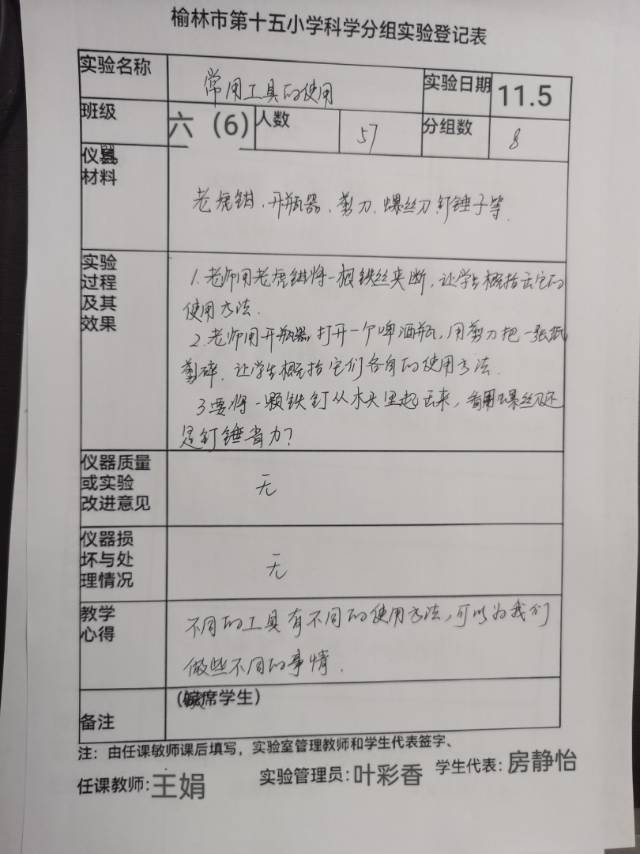 榆林市第十五小学科学分组实验登记表
实验名称 常用工具的使用 实验日期 11.5
班级 六（6） 人数 57 分组数 8
仪器
材料
老虎钳、开瓶器、剪刀、螺丝刀、钉锤子等.
实验
过程
及其
效果
1.老师用老虎钳将一根铁丝夹断,让学生概括云它的
使用方法.
2.老师用开瓶器打开一个啤酒瓶,用剪刀把一张纸
剪碎.让学生概括它们各自的使用方法.
3要将一颗铁钉从木头里起云来,看用螺丝刀还
是钉锤省力?
仪器质量
或实验
改进意见
无
仪器损
坏与处
理情况
无
教学
心得
不同的工具有不同的使用方法,可以为我们
做些不同的事情.
备注
(缺席学生)
注：由任课敏师课后填写，实验室管理教师和学生代表签字、
任课教师:王娟 实验管理员:叶彩香 学生代表:房静怡